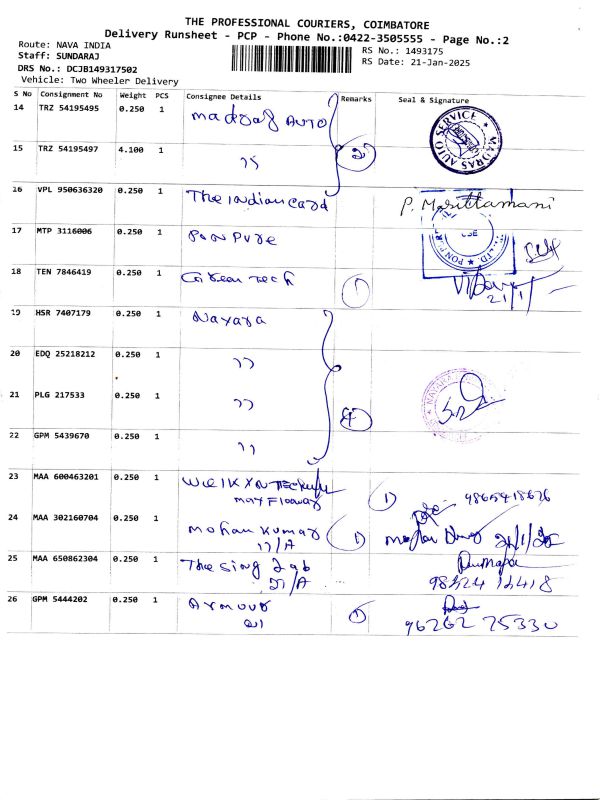 THE PROFESSIONAL COURIERS, COIMBATORE
Delivery Runsheet - PCP - Phone No.:0422-3505555 - Page No.:2
Route: NAVA INDIA
Staff: SUNDARAJ
DRS No.: DCJB149317502
Vehicle: Two Wheeler Delivery
RS No.: 1493175
RS Date: 21-Jan-2025
S No Consignment No Weight PCS Consignee Details Remarks Seal & Signature
14 TRZ 54195495 0.250 1 Madras AUTO
MADRAS AUTO SERVICE
15 TRZ 54195497 4.100 1 ״ 2
16 VPL 950636320 0.250 1 The Indian Card P. Marittamani
17 MTP 3116006 0.250 1 Pon Pure
18 TEN 7846419 0.250 1 Tech 1 21/1
19 HSR 7407179 0.250 1 Nayara
20 EDQ 25218212 0.250 1 ״
21 PLG 217533 0.250 1 ״ 4
NAYARA
22 GPM 5439670 0.250 1 ״
23 MAA 600463201 0.250 1 1
24 MAA 302160704 0.250 1 Mohan Kumar 1 21/1/25
25 MAA 650862304 0.250 1 The Sing
26 GPM 5444202 0.250 1 1 96262 75330